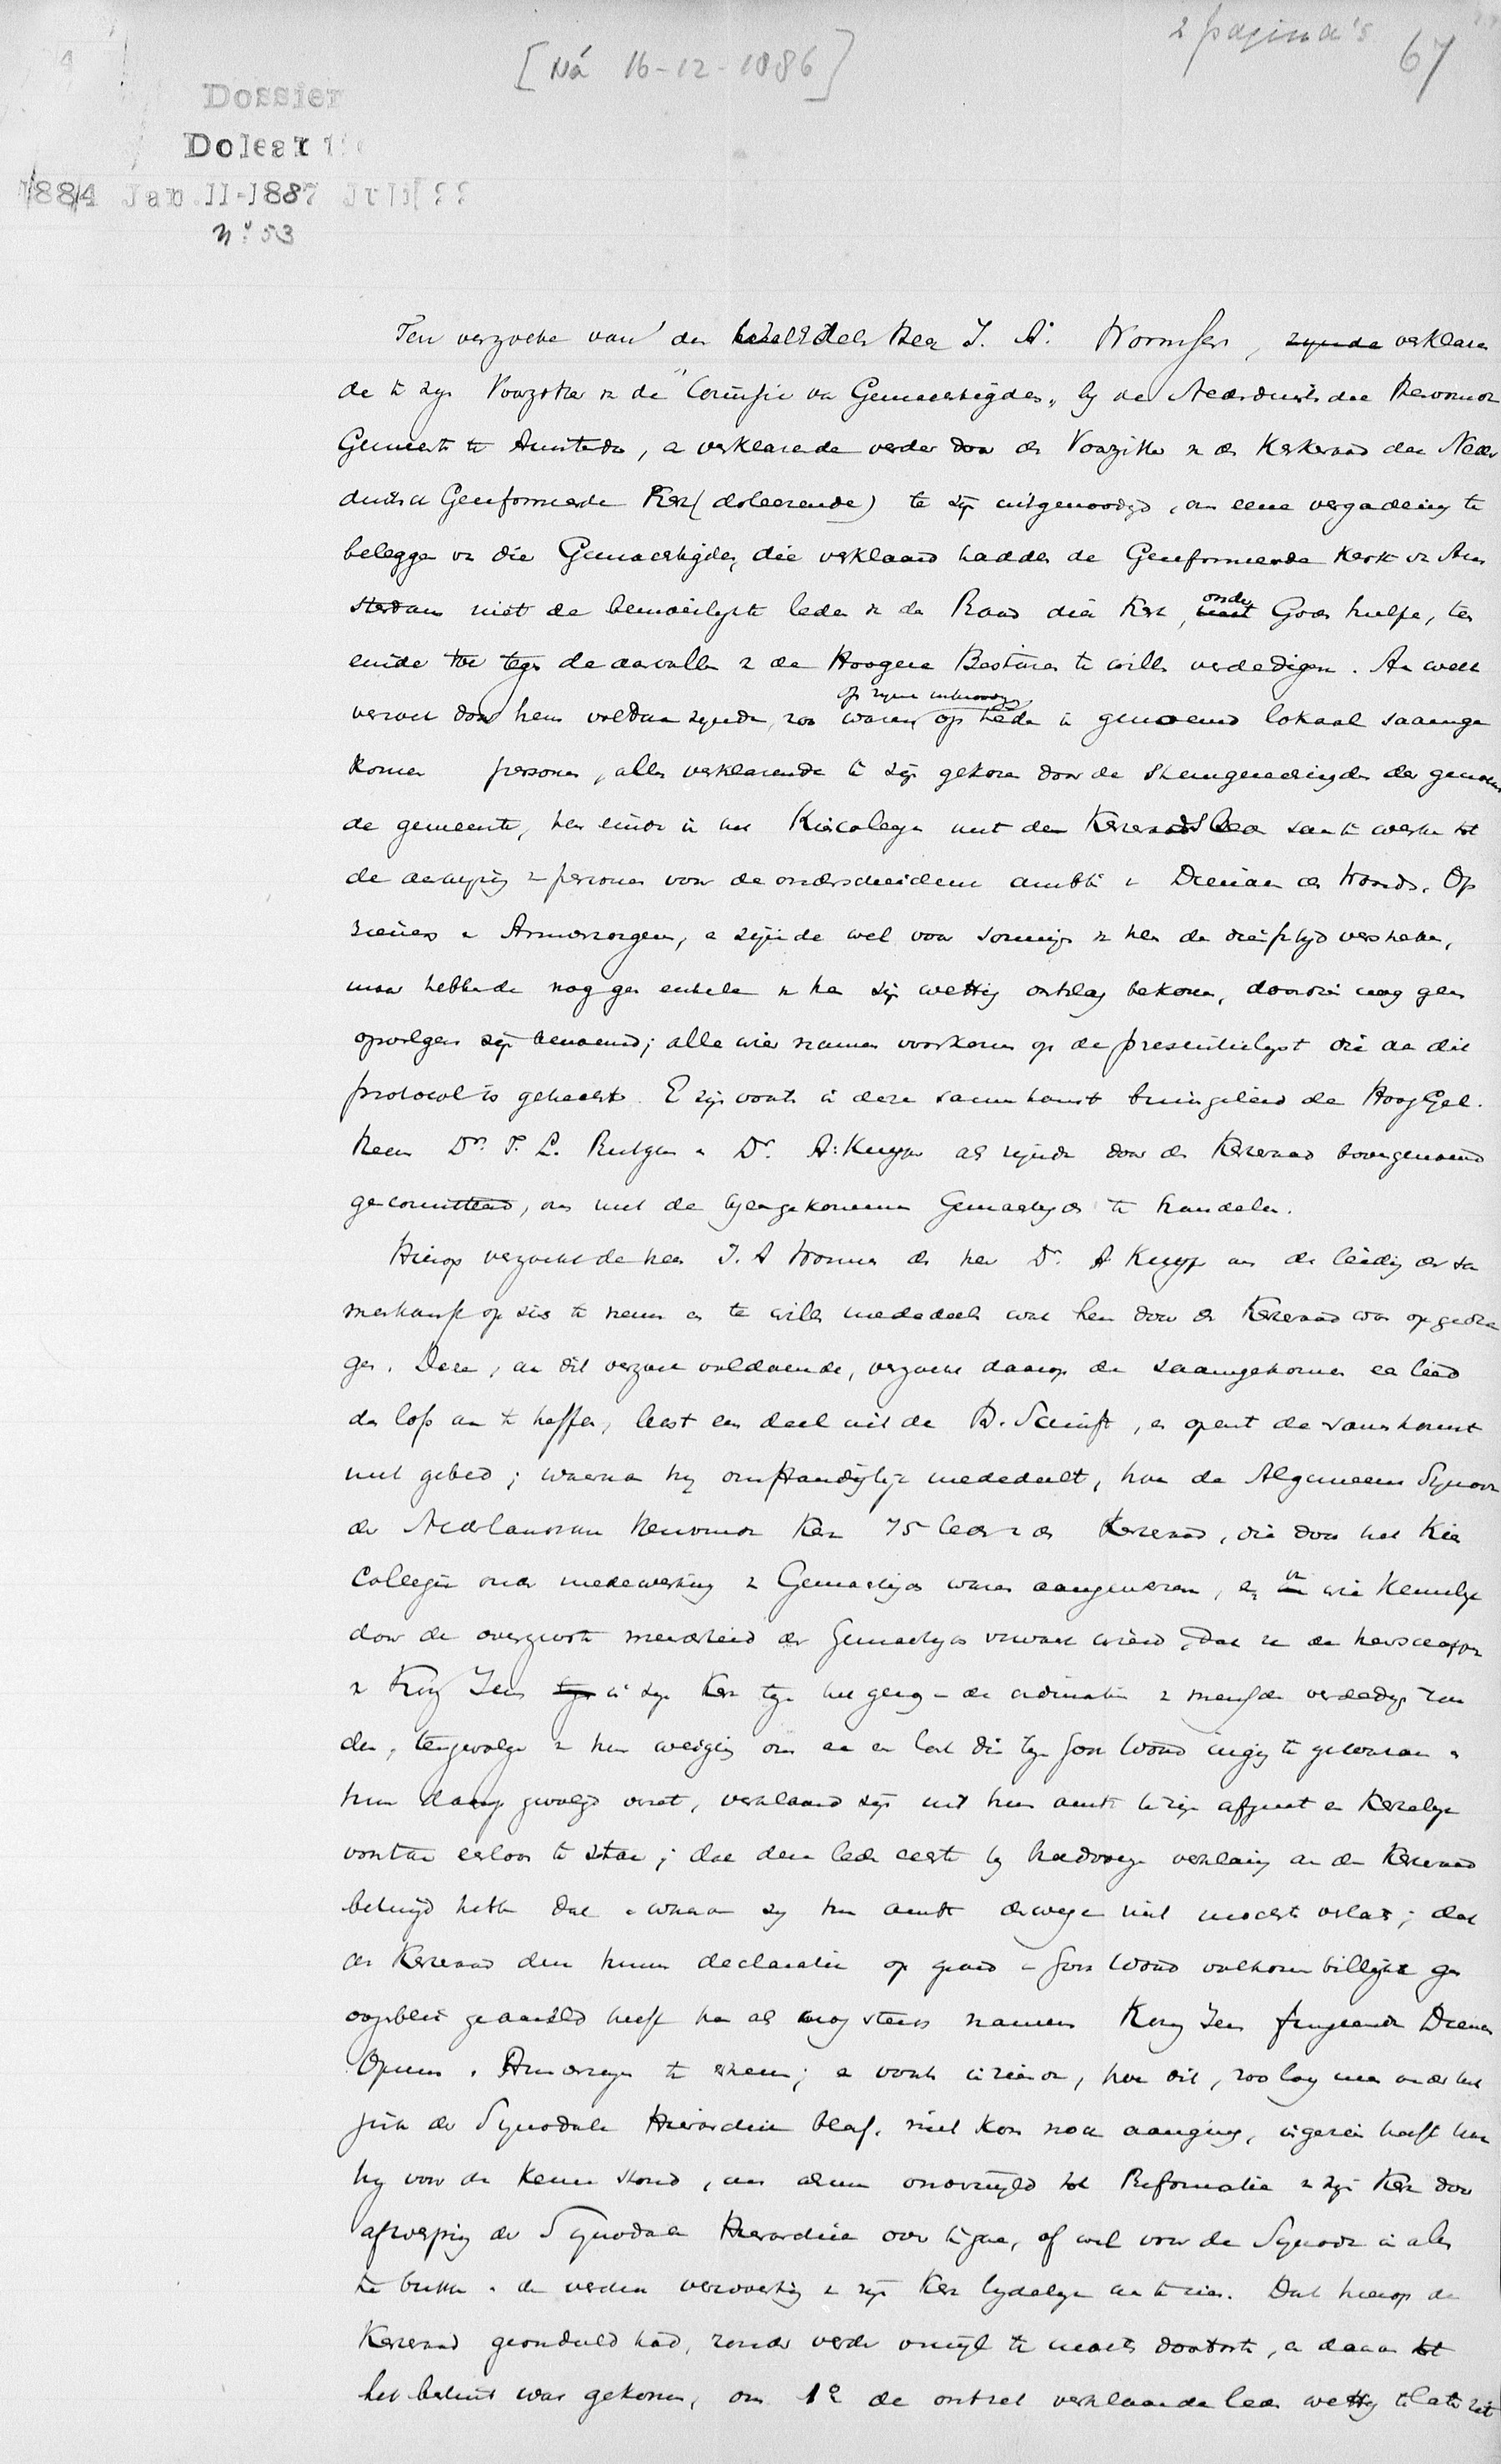 2 pagina's 67
[Ná 16-12-1886]
Dossier
Doleantie
1884 Jan. 11-1887 Juli 22
No. 53
Ten verzoeke van den Heer J. A. Wormser, zijnde verklaren
de te zijn Voorzitter v. de "Comissie van Gemachtigden" bij de Nederduitsche Hervormde
Gemeente te Amsterdam, en verklarende verder door den Voorzitter v. den Kerkeraad der Neder
duitsch Gereformeerde Kerk (doleerende) te zijn uitgenoodigd, om eene vergadering te
beleggen van die Gemachtigden, die verklaard hadden de Gereformeerde Kerk van Am
sterdam met de bemoeilijkte leden v. den Raad dier Kerk, met onder Gods hulpe, ten
einde toe tegen de aanvallen v. de Hoogere Besturen te willen verdedigen. Aan welk
op zijne uitnoodiging
verzoek door hem voldaan zijnde, zoo waren op heden in genoemd lokaal saamge
komen personen, allen verklarende te zijn gekozen door de stemgerechtigden der genoem
de gemeente, ten einde in het Kiescollege met den Kerkeraad saam te werken tot
de aanwijzing v. personen voor de onderscheidene ambten v. Dienaar des Woords, Op
zieners en Armverzorgers, en zijnde wel voor sommigen v. hen de diensttijd verstreken,
maar hebbende nog geen enkele v. hen zijn wettig ontslag bekomen, doordien nog geen
opvolgers zijn benoemd; alle wier namen voorkomen op de presentielijst die aan dit
protocol is gehecht. Er zijn voorts in deze saamkomst binnengeleid de HoogGel.
Heeren Dr. F. L. Rutgers en Dr. A. Kuyper als zijnde door den Kerkeraad bovengenoemd
gecommitteerd, om met de bijeengekomene Gemachtigden te handelen.
Hierop verzocht de heer J. A Wormser den heer Dr. A Kuyper om de leiding der sa
menkomst op zich te nemen en te willen mededeelen wat hem door den Kerkeraad was opgedra
gen. Deze, aan dit verzoek voldoende, verzocht daarop de saamgekomenen een lied
den lof aan te heffen, leest een deel uit de H. Schrift, en opent de saamkomst
met gebed; waarna hij omstandiglijk mededeelt, hoe de Algemeene Synode
der Nederlandsche Hervormde Kerk 75 leden v. den Kerkeraad, die door het Kies
Collegie onder medewerking v. Gemachtigden waren aangewezen, en van wie kennelijk
door de overgroote meerderheid der Gemachtigden verwacht wierd, dat ze de heerschappij
v. Koning Jezus tegen in zijn Kerk tegen het gezag en de ordinantiën v. menschen verdedigen zou
den, tengevolge v. hun weigering om aan een last die tegen Gods Woord inging te gehoorzamen en
hun daarop gevolgd verzet, verklaard zijn uit hun ambt te zijn afgezet en Kerkelijk
voortaan eerloos te staan; dat deze leden eerst bij hoedvoege verklaring aan den Kerkeraad
betuigd hebben dat en waarom zij hun ambt deswege niet mochten verlaten; dat
de Kerkeraad deze hunne declaratie op grond v. Gods Woord volkomen billijkt en geen
oogenblik geaarzeld heeft hen als nog steeds namens Koning Jezus fungeerende Dienaren
Opzieners en Armverzorgers te erkennen; en voorts inziende, hoe dit, zoo lang men onder het
juk der Synodale Hiërarchie bleef, niet kon noch aanging, ingezien heeft hoe
hij voor de keuze stond, om alsnu onverwijld tot Reformatie v. zijn Kerk door
afwerping der Synodale Hiërarchie over te gaan, of wel voor de Synode in alles
te bukken en de verdere verwoesting v. zijn Kerk lijdelijk aan te zien. Dat hierop de
Kerkeraad geoordeeld had, zonder verder verwijl te moeten doortasten, en daarom tot
het besluit was gekomen, om 1e de ontzet verklaarde leden wettig te laten zit